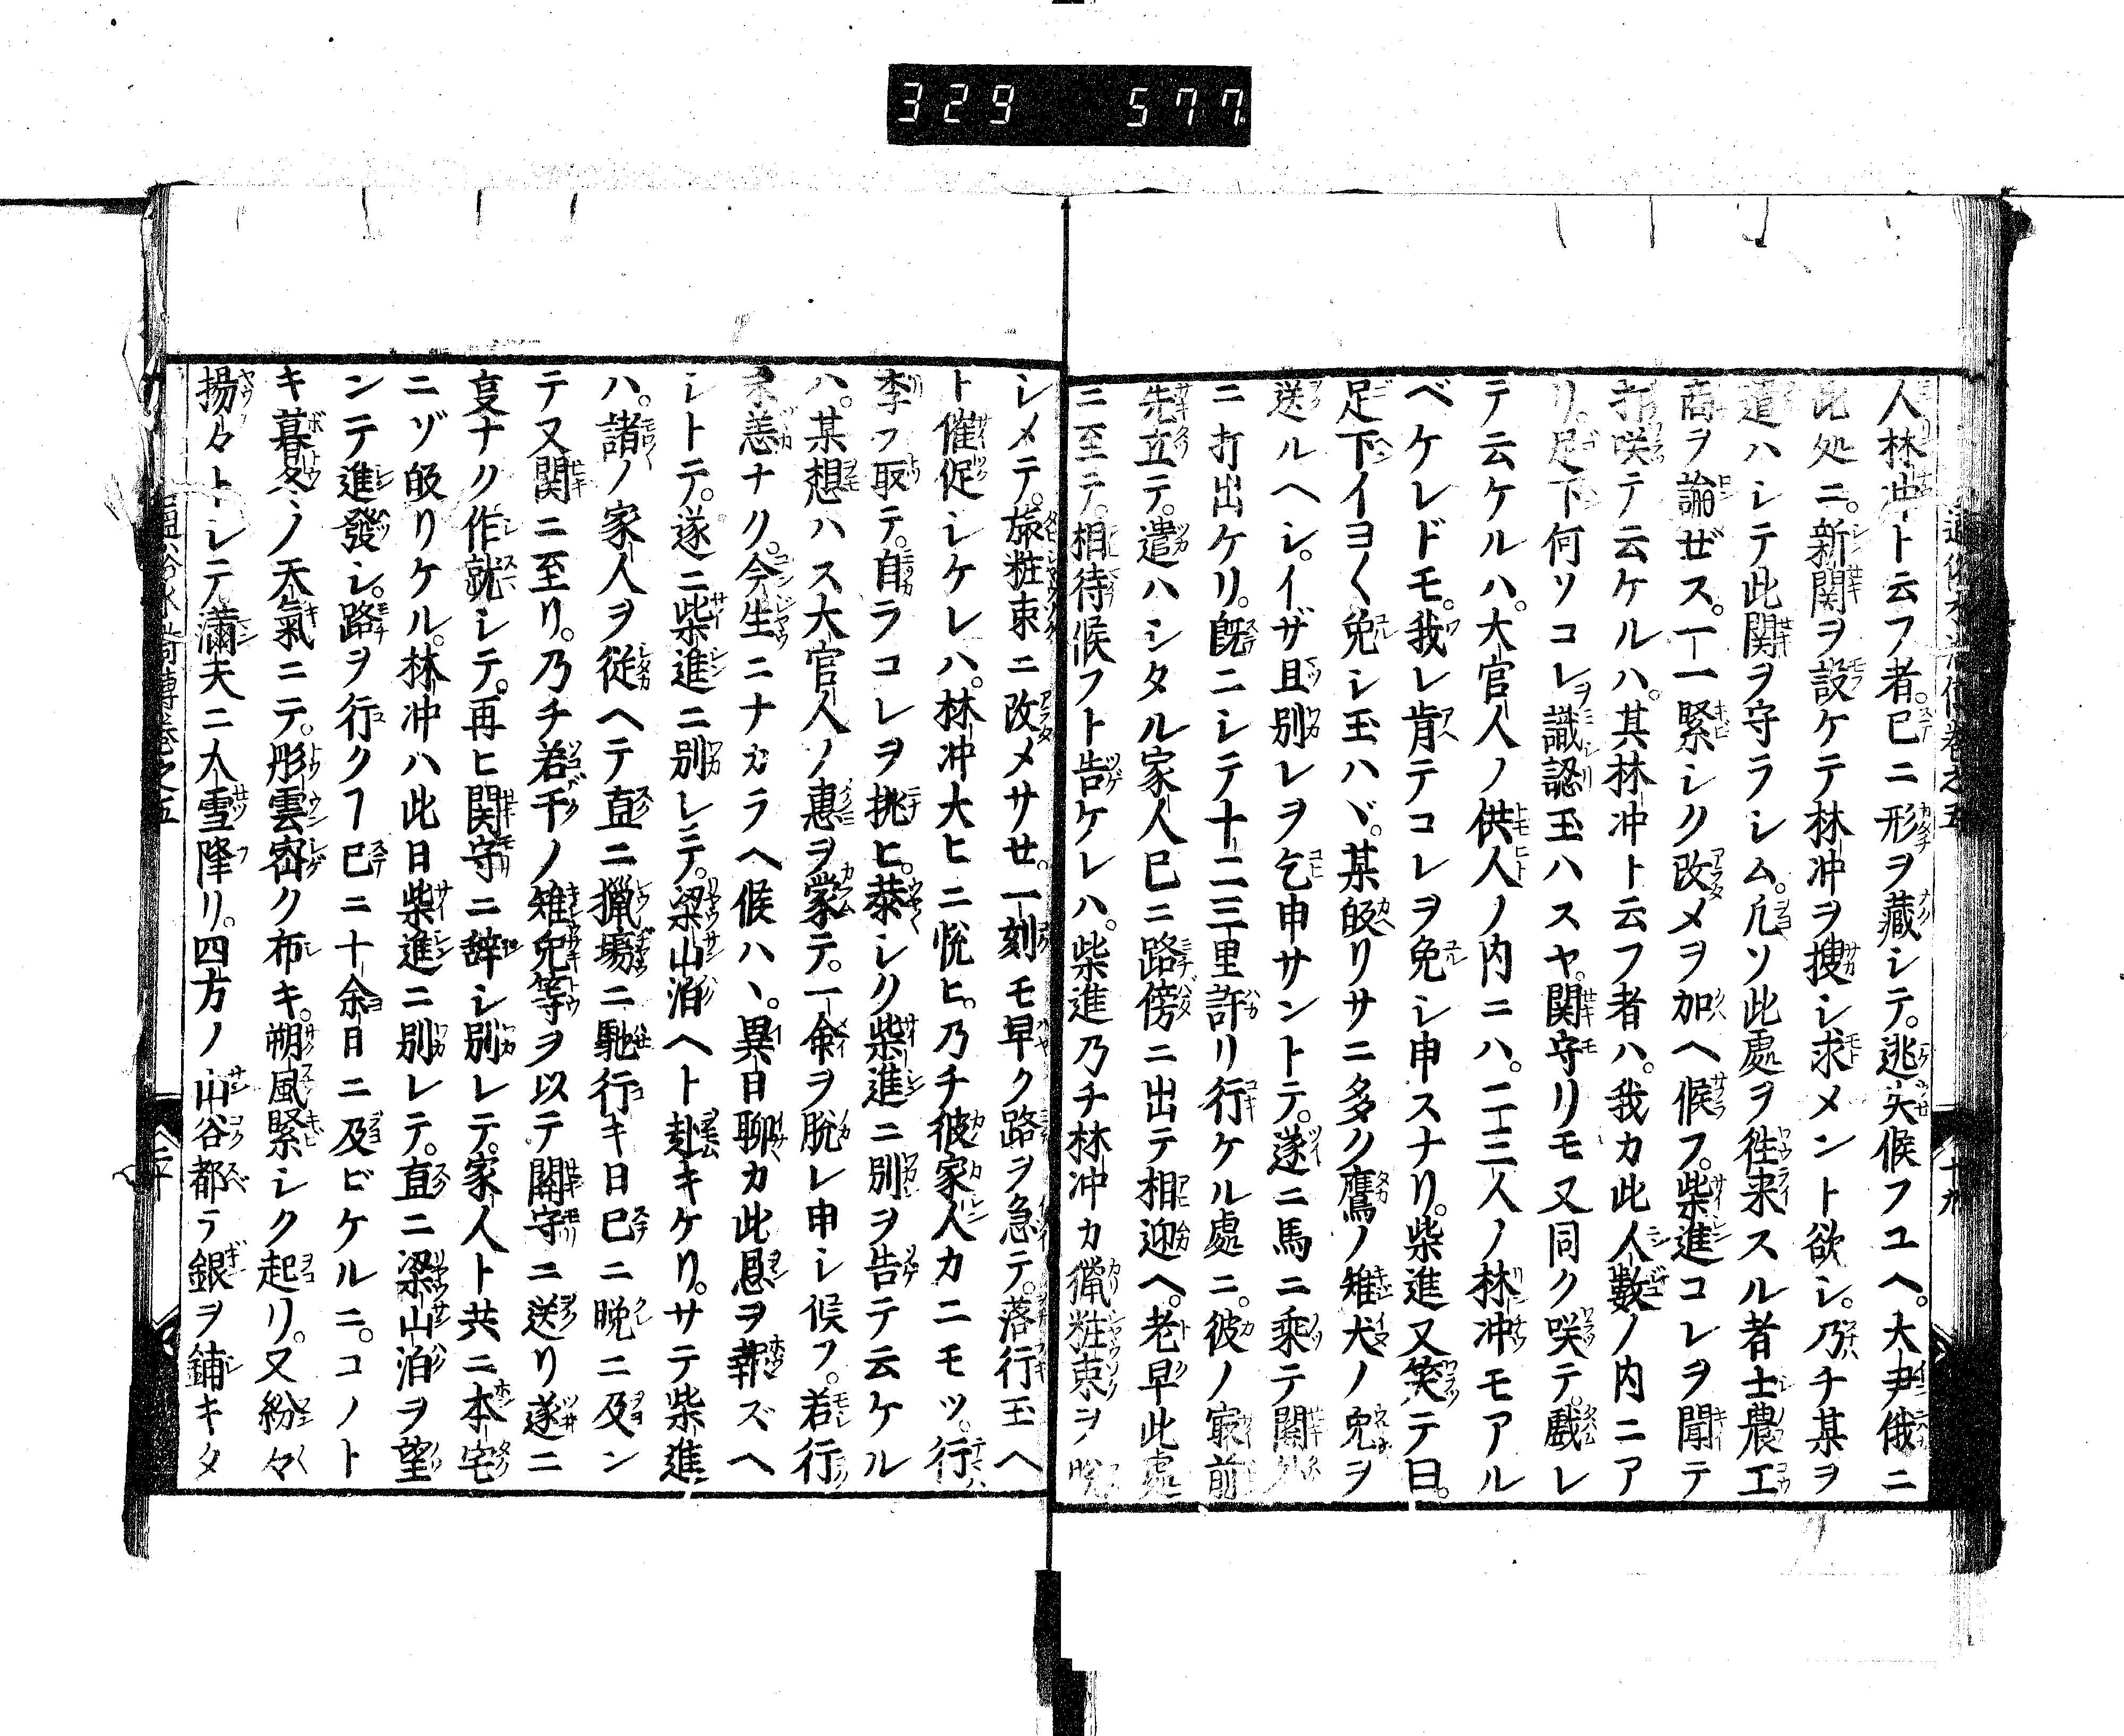 329 577
人林冲ト云フ者。已ニ形ヲ藏シテ。逃失候フユヘ。大尹俄ニ
此処ニ。新関ヲ設ケテ林冲ヲ捜シ求メント欲シ。乃チ某ヲ
遣ハシテ此関ヲ守ラシム。凡ソ此處ヲ徃来スル者士農工
商ヲ論ゼス。一一緊シク改メヲ加ヘ候フ。柴進コレヲ聞テ
打咲テ云ケルハ。其林冲ト云フ者ハ。我カ此人數ノ内ニア
リ。足下何ソコレヲ識認玉ハスヤ。関守リモ又同ク咲テ。戯レ
テ云ケルハ。大官人ノ供人ノ内ニハ。二三人ノ林冲モアル
ベケレドモ。我レ肯テコレヲ免シ申スナリ。柴進又笑テ曰。
足下イヨ〱免シ玉ハヾ。某皈リサニ多ク鷹ノ雉犬ノ兔ヲ
送ルヘシ。イザ且別レヲ乞申サントテ。遂ニ馬ニ乘テ関外
ニ打出ケリ。既ニシテ十二三里許リ行ケル處ニ。彼ノ冣前
先立テ。遣ハシタル家人已ニ路傍ニ出テ相迎ヘ。老早此處
ニ至テ。相待候フト告ケレハ。柴進乃チ林冲カ獵粧束ヲ脱
シメテ。旅粧束ニ改メサせ。一刻モ早ク路ヲ急テ。落行玉ヘ
ト催促シケレハ。林冲大ヒニ悦ヒ。乃チ彼家人カニモツ。行
李フ取テ。自ラコレヲ挑ヒ。恭シク柴進ニ別ヲ告テ云ケル
ハ。某想ハス大官人ノ惠ヲ蒙テ。一命ヲ脱レ申シ候フ。若行
末恙ナク。今生ニナカラヘ候ハヽ。異日聊カ此恩ヲ報ズヘ
シトテ。遂ニ柴進ニ別レテ。梁山泊ヘト赴キケリ。サテ柴進
ハ。諸ノ家人ヲ従ヘテ直ニ獵場ニ馳行キ日已ニ晩ニ及ン
テ又関ニ至リ。乃チ若干ノ雉兔等ヲ以テ関守ニ送リ遂ニ
㕝ナク作就シテ。再ヒ関守ニ辞シ別レテ。家人ト共ニ本宅
ニゾ皈リケル。林冲ハ此日柴進ニ別レテ。直ニ梁山泊ヲ望
ンテ進發シ。路ヲ行クヿ已ニ十余日ニ及ビケルニ。コノト
キ暮冬ノ天氣ニテ。彤雲密ク布キ。朔風緊シク起リ。又紛々
揚々トシテ滿天ニ大雪降リ。四方ノ山谷都テ銀ヲ鋪キタ